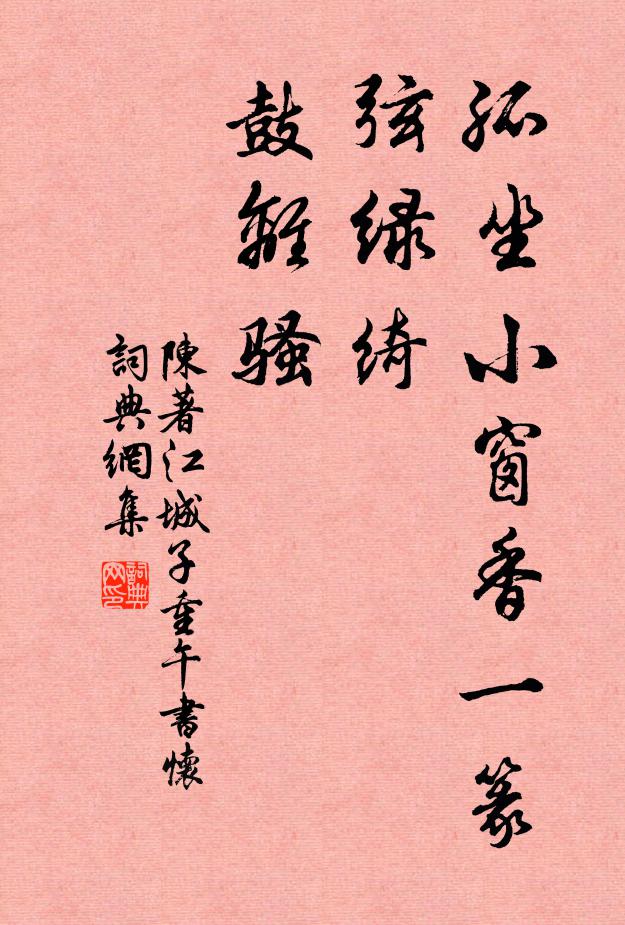 孤坐小窗香一篆
弦绿绮
鼓離騷
陳著江城子重午書懷
詞典網集
詞典网印